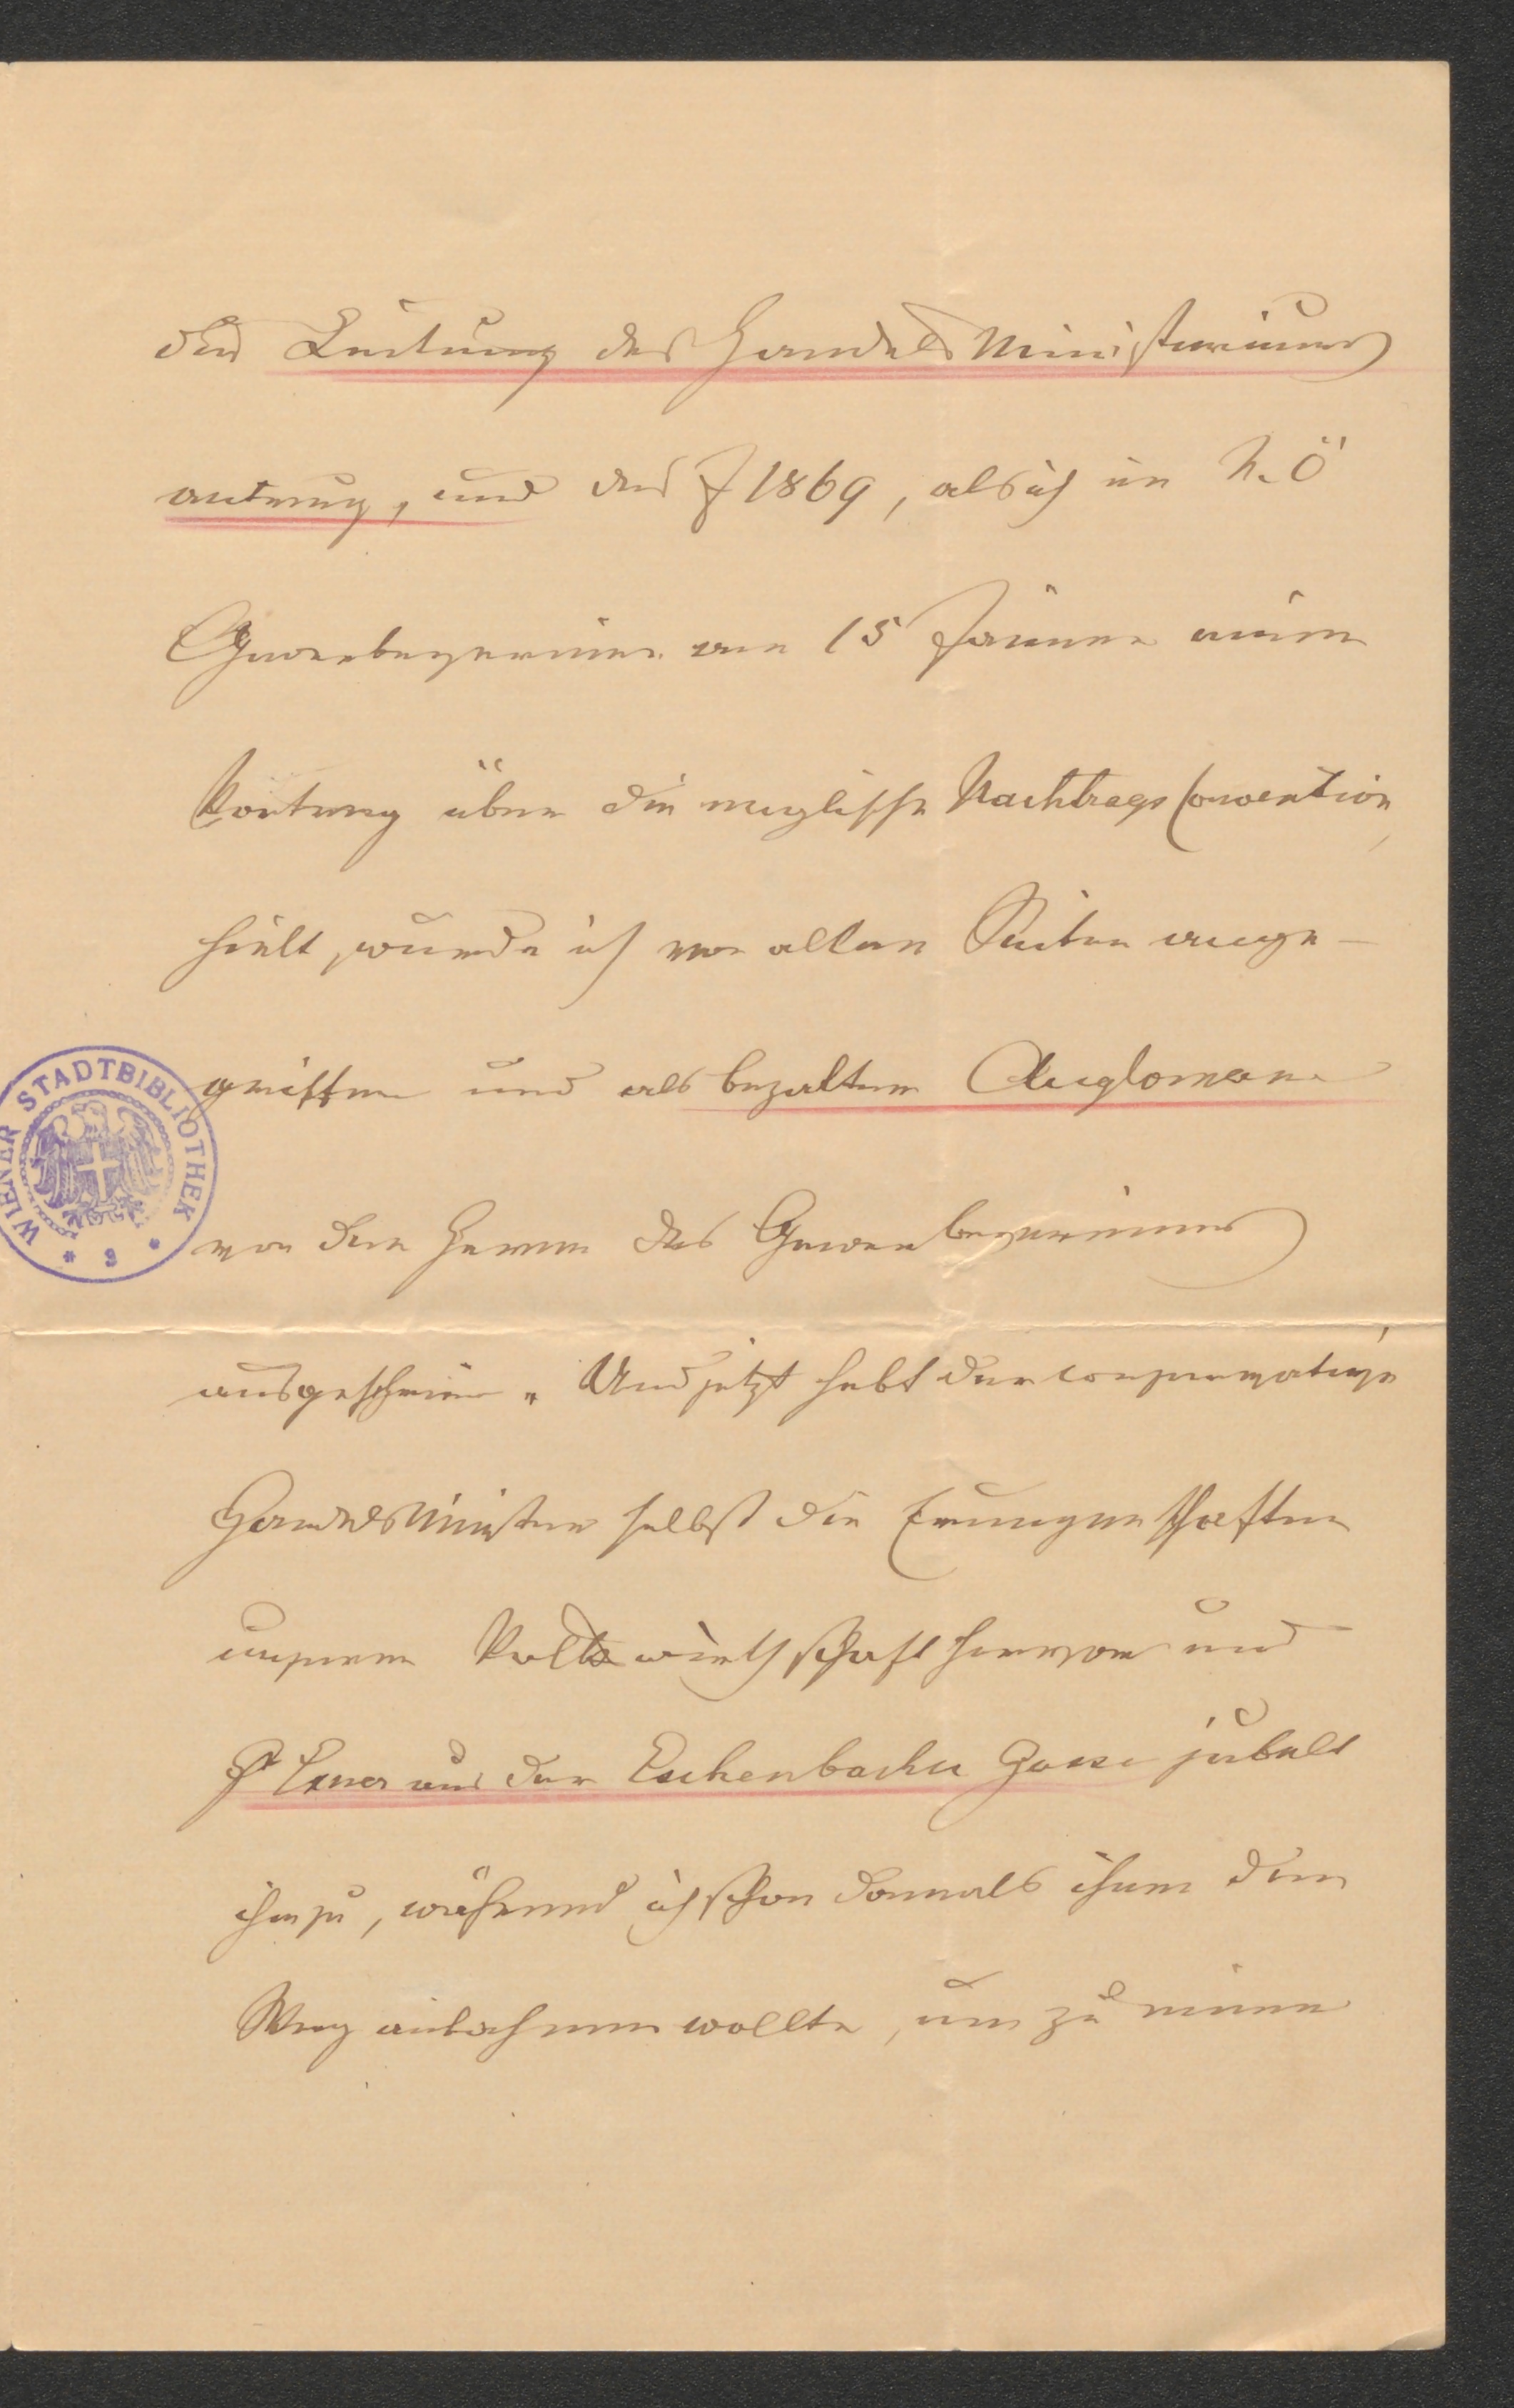 die Leitung des Handels Ministeriums
antrug, und das J 1869, als ich im N. Ö
Gewerbeverein am 15 Jänner einen
Vortrag über die englische Nachtrags Convention
hielt, wurde ich von allen Seiten ange-
griffen und als bezalter Anglomane
von den Herren des Gewerbevereines
ausgeschrien. Und jetzt hebt der conservative
Handelsminister selbst die Errungenschaften
unserer Volkswirthschaft hervor und
Dr Exner aus der Eschenbacher Gasse jubelt
ihm zu, während ich schon damals ihnen den
Weg anbahnen wollte, um zu einem
WIENER STADTBIBLIOTHEK
* 9 *